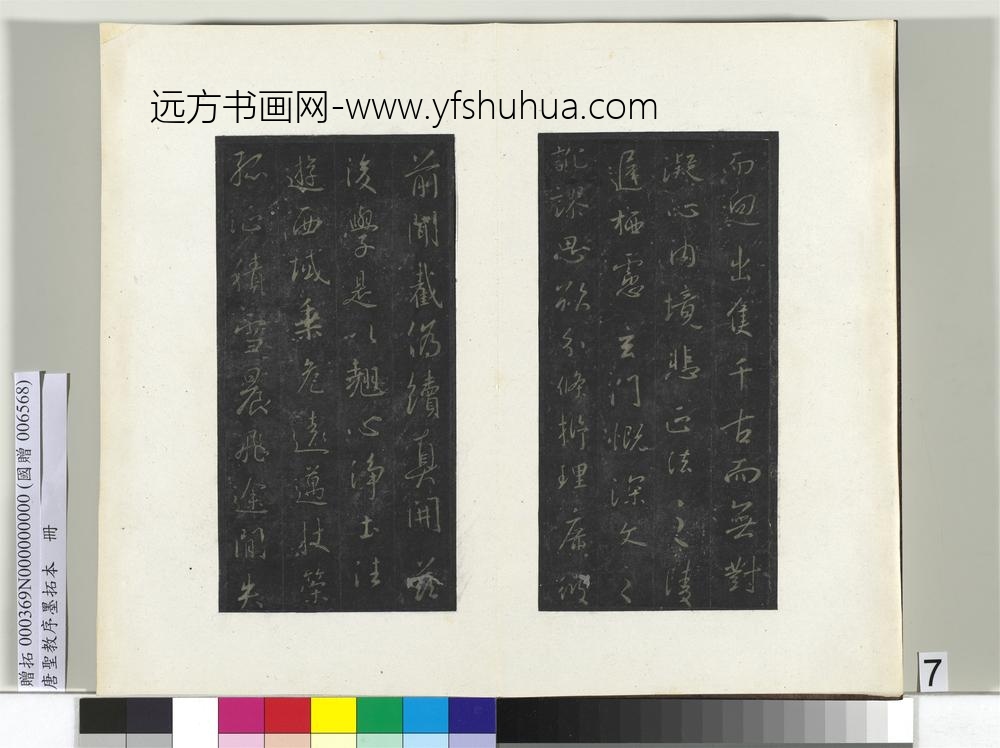 远方书画网-www.yfshuhua.com
而迥出隻千古而無對
凝心内境悲正法之陵
遲栖慮玄门慨深文之
訛謬思欲分條析理廣彼
前聞截偽續真開茲
後學是以翹心淨土法
遊西域乘危遠邁杖策
孤征積雪晨飛途間失
贈拓 000369N000000000 (國贈 006568)
唐聖教序墨拓本 冊
7